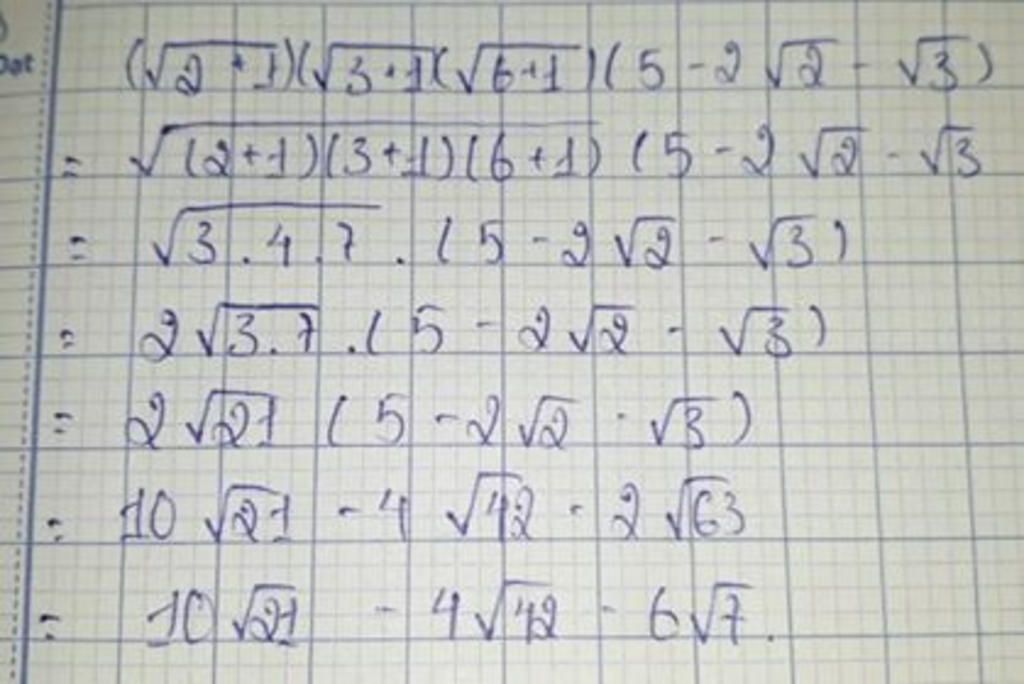 (√2+1)(√3+1(√6+1)(5-2√2-√3)
= √(2+1)(3+1)(6+1) (5-2√2-√3
= √3.4.7.(5-2√2-√3)
= 2√3.7.(5-2√2-√3)
= 2√21 (5-2√2-√3)
= 10√21 -4√42-2√63
= 10√21 - 4√42 - 6√7.